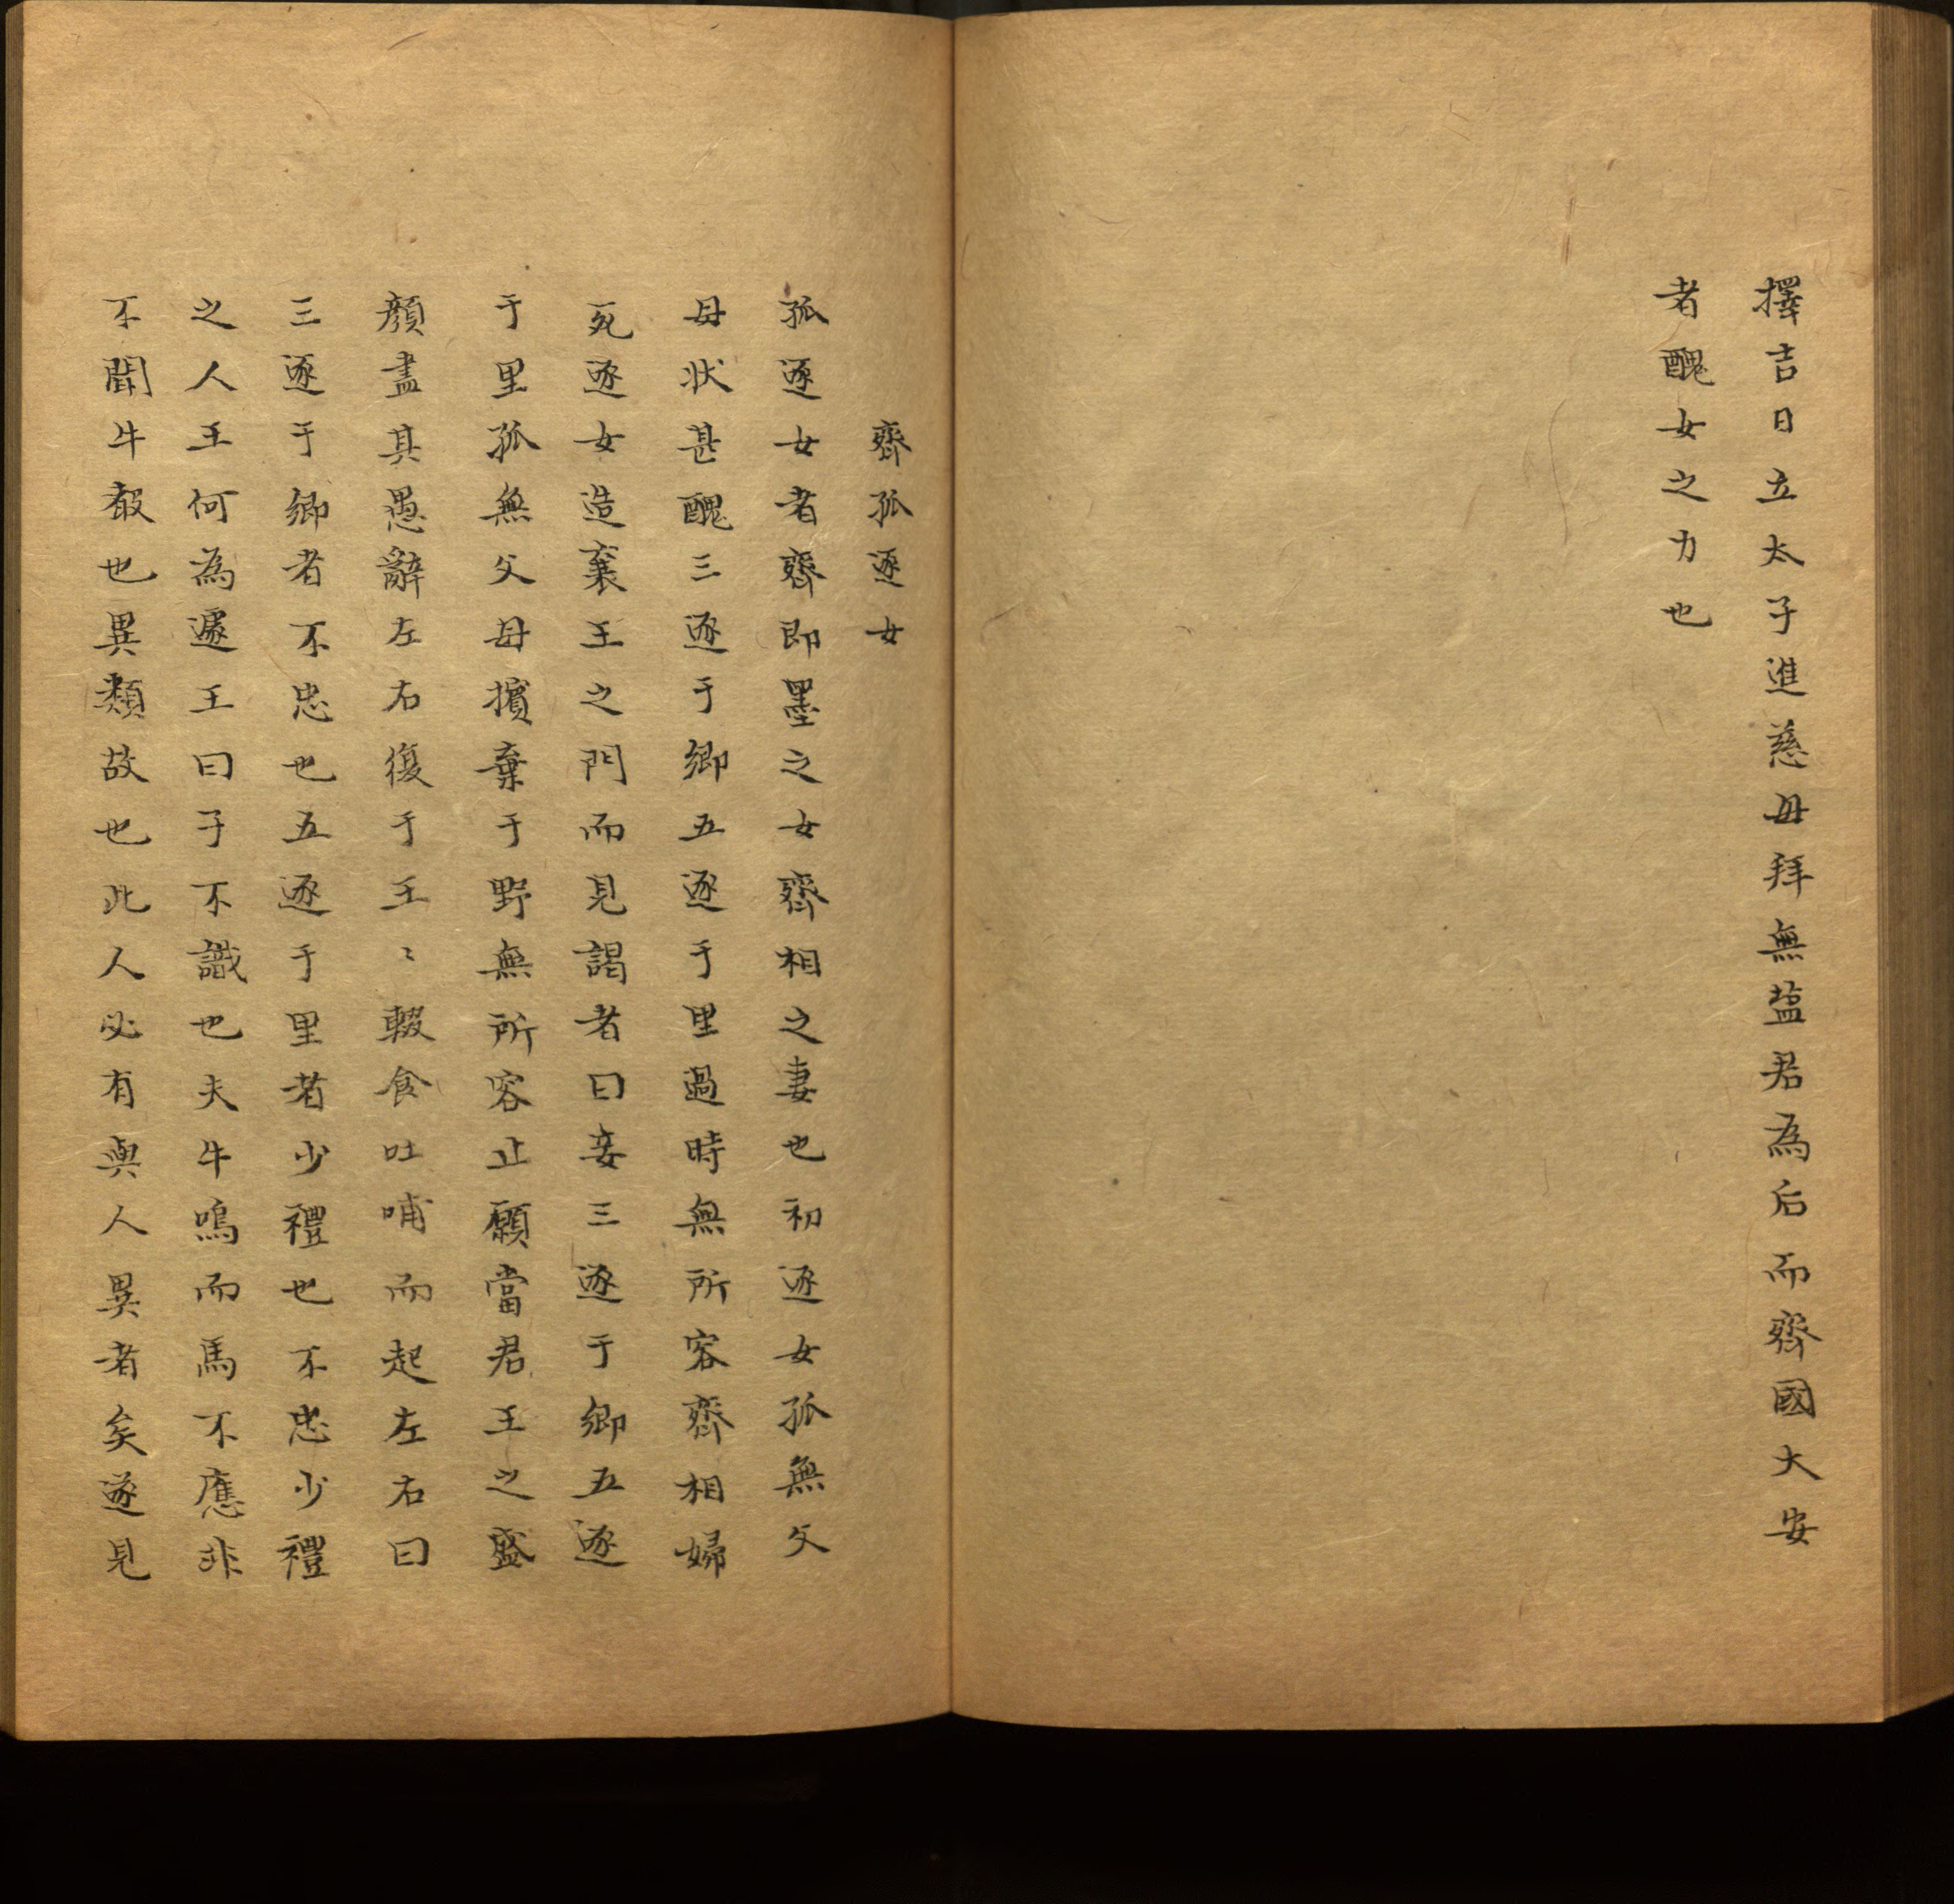 擇吉日立太子進慈母拜無塩君為后而齊國大安
者醜女之力也
齊孤逐女
孤逐女者齊即墨之女齊相之妻也初逐女孤無父
母狀甚醜三逐于鄉五逐于里過時無所容齊相婦
死逐女造襄王之門而見謁者曰妾三逐于鄉五逐
于里孤無父母擯棄于野無所容止願當君王之盛
顏盡其愚辭左右復于王〻輟食吐哺而起左右曰
三逐于鄉者不忠也五逐于里者少禮也不忠少禮
之人王何為遽王曰子不識也夫牛鳴而馬不應非
不聞牛聲也異類故也此人必有與人異者矣遂見